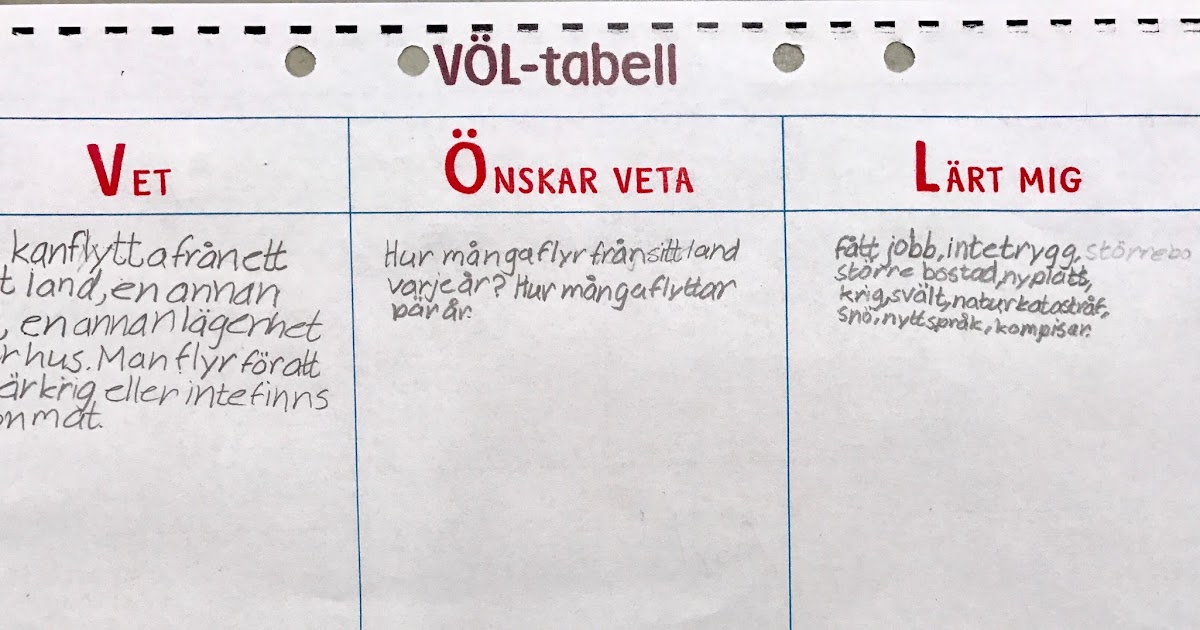 VÖL-tabell
VET
ÖNSKAR VETA
LÄRT MIG
kan flytta från ett
t land, en annan
, en annan lägerhet
r hus. Man flyr för att
är krig eller inte finns
on mat.
Hur många flyr från sitt land
varje år? Hur många flyttar
pär år.
fått jobb, inte trygg, större bo
större bostad, ny plats,
krig, svält, naturkatastråf,
snö, nytt språk, kompisar.